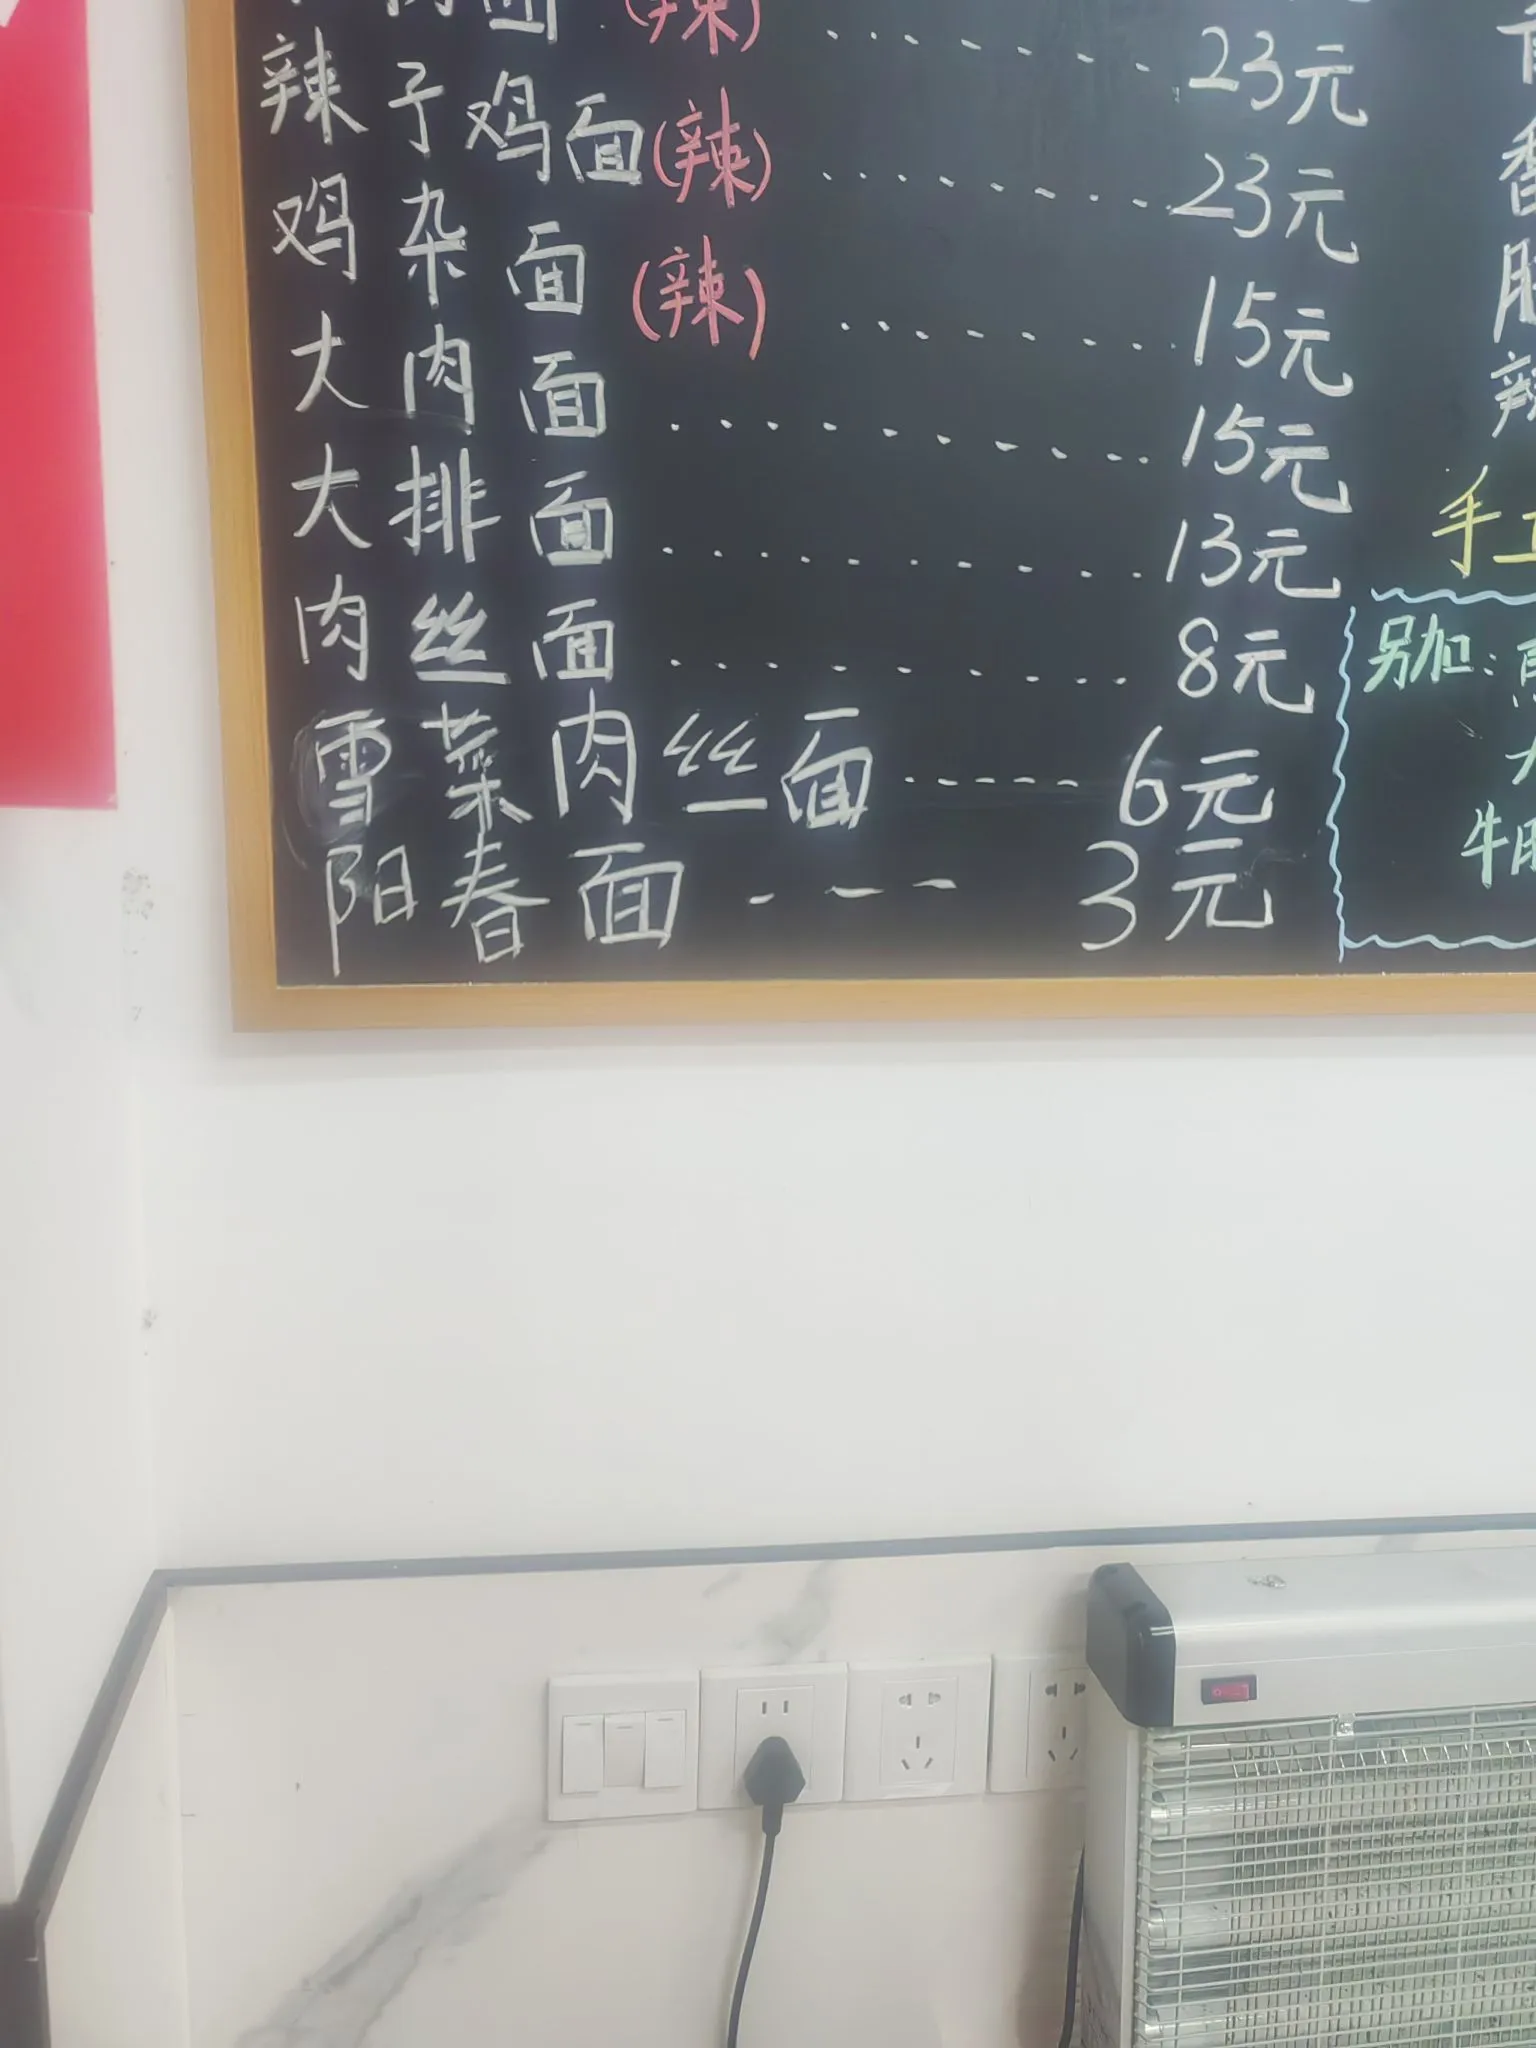 肉面(辣)..........23元
辣子鸡面(辣)..........23元
鸡杂面(辣)..........15元
大肉面..........15元
大排面..........13元
肉丝面..........8元
雪菜肉丝面------6元
阳春面---3元
香
辣
手
另加:
牛